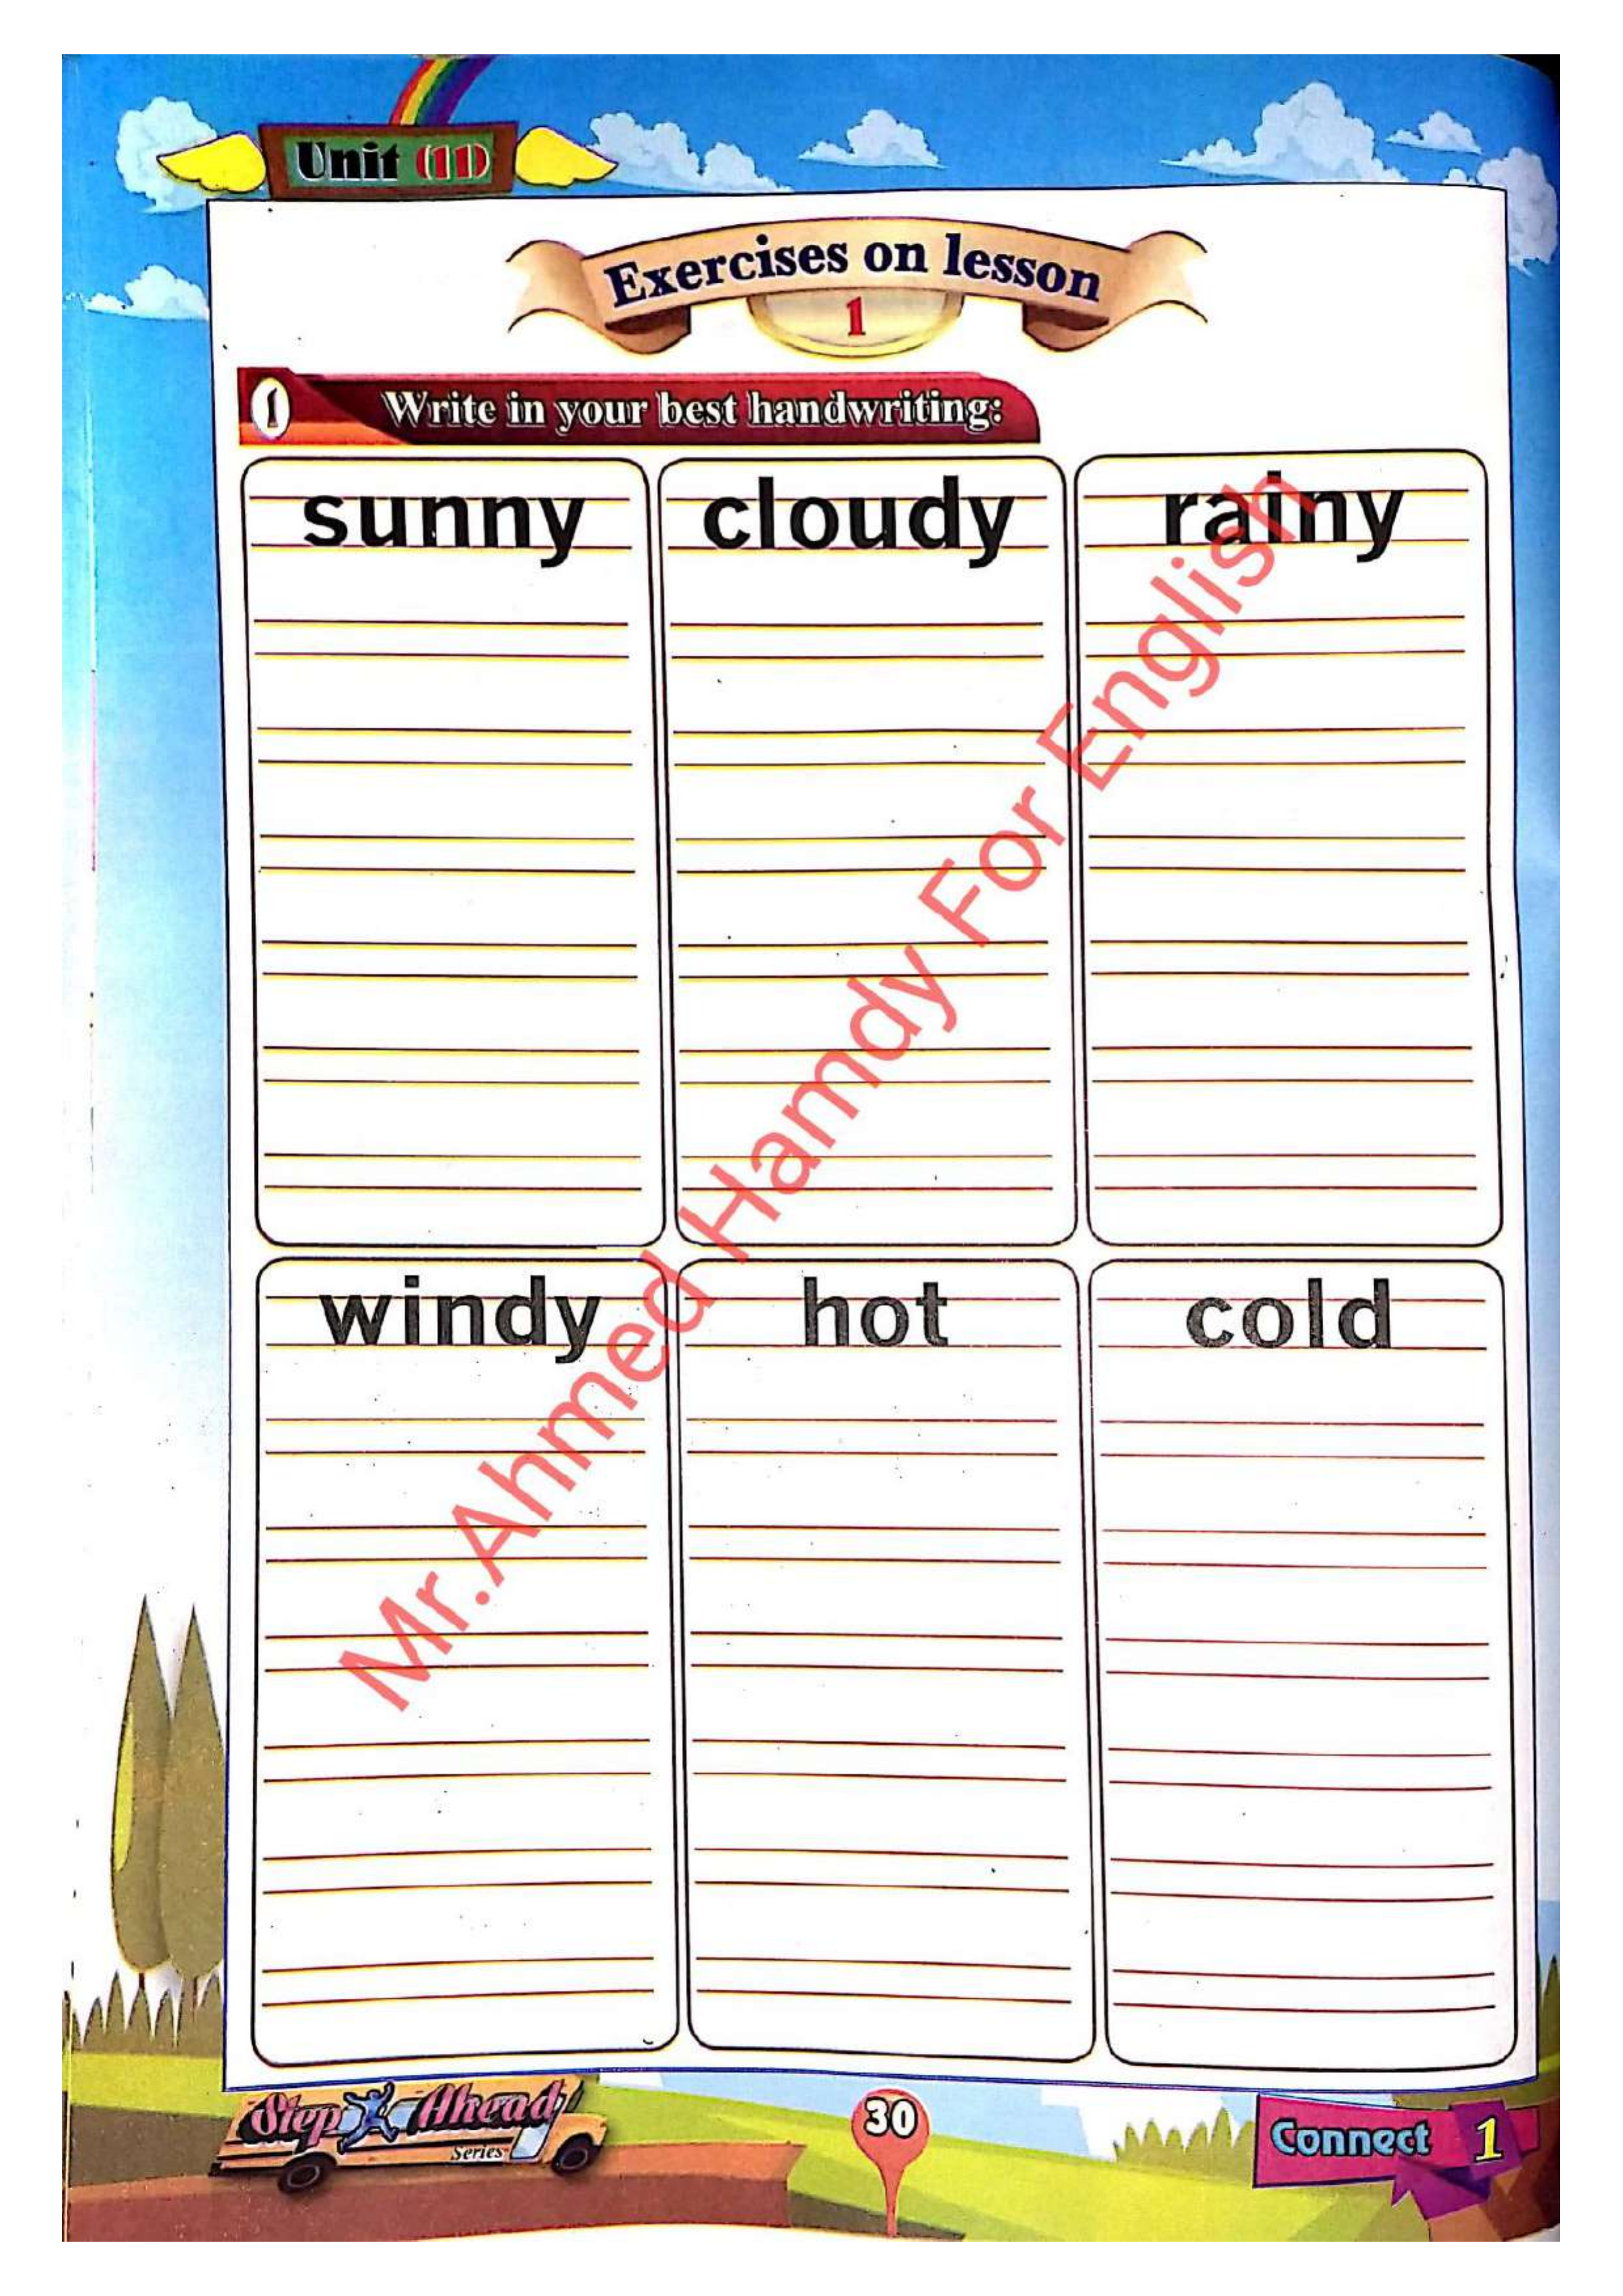 Unit (11)
Exercises on lesson
1
1 Write in your best handwriting:
sunny cloudy rainy
windy hot cold
Mr.Ahmed Hamdy For English
Step Ahead
Series
30
Connect 1